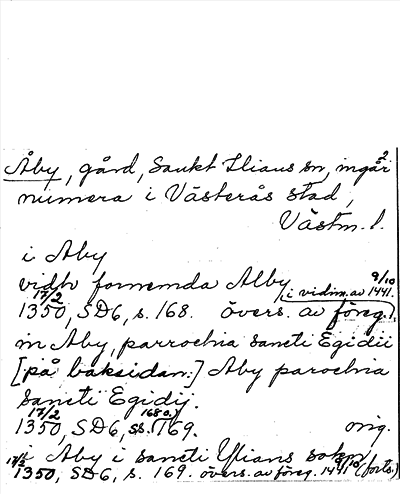 Åby, gård, Sankt Ilians sn, ingår
numera i Västerås stad,
Västm. l.
i Aby
vidh fornemda Alby (i vidim. av 9/10 1441.
17/2 1350, SD6, s. 168. övers. av föreg.).
in Aby, parrochia sancti Egidii
[på baksidan:] Aby parochia
sancti Egidij.
17/2 1350, SD6, s. 169. orig.
i Aby i sancti Ylians sokn
17/2 1350, SD6, s. 169. övers. av föreg. 9/10 1441 (forts.)